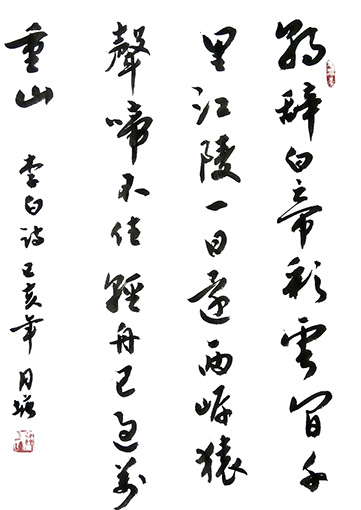 朝辭白帝彩雲間千
里江陵一日還兩岸猿
聲啼不住輕舟已過萬
重山 李白詩 己亥年 月